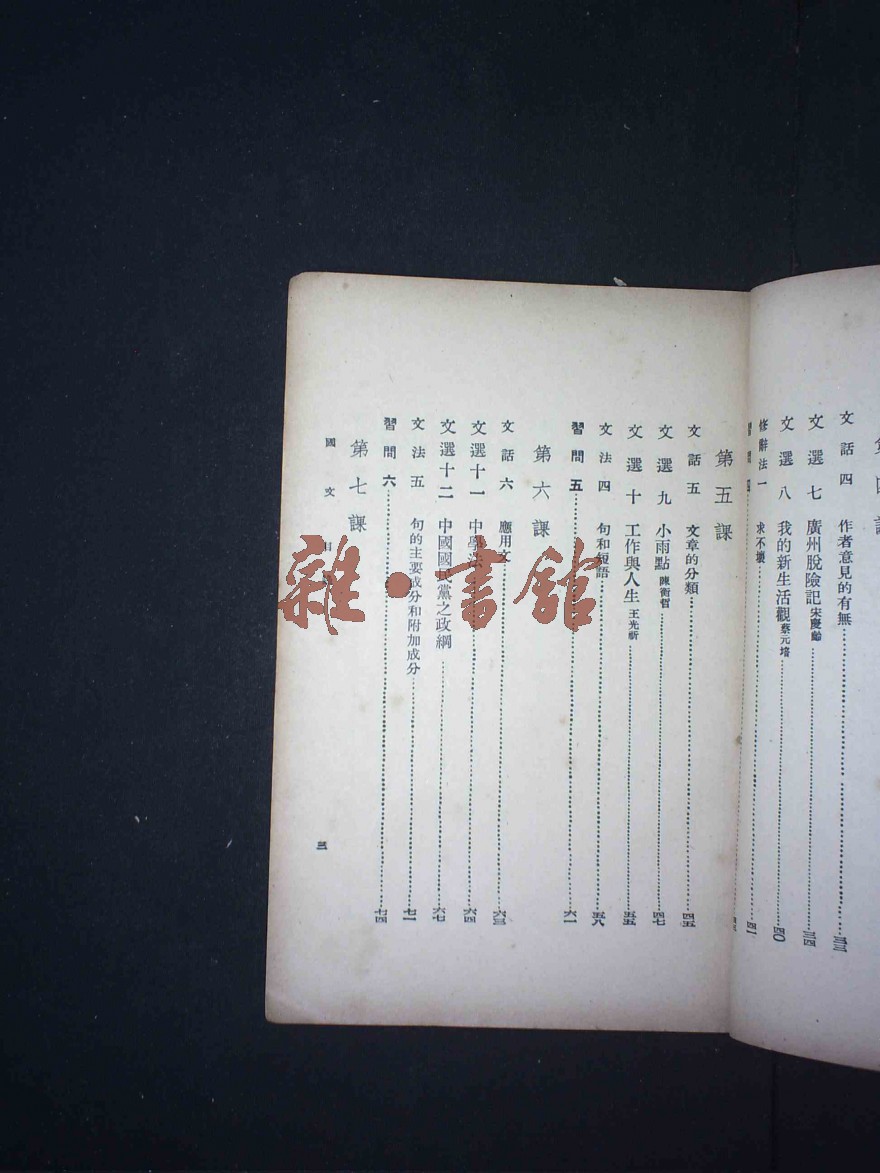 課
文話四　作者意見的有無……三三
文選七　廣州脫險記 宋慶齡……三四
文選八　我的新生活觀 蔡元培……四〇
修辭法一　求不壞……四一
習問四……
第五課
文話五　文章的分類……四五
文選九　小雨點 陳衡哲……四七
文選十　工作與人生 王光祈……五五
文法四　句和短語……五八
習問五……六一
第六課
文話六　應用文……六三
文選十一　中學法……六四
文選十二　中國國民黨之政綱……六七
文法五　句的主要成分和附加成分……七一
習問六……七四
第七課
國文目　三
雜·書館